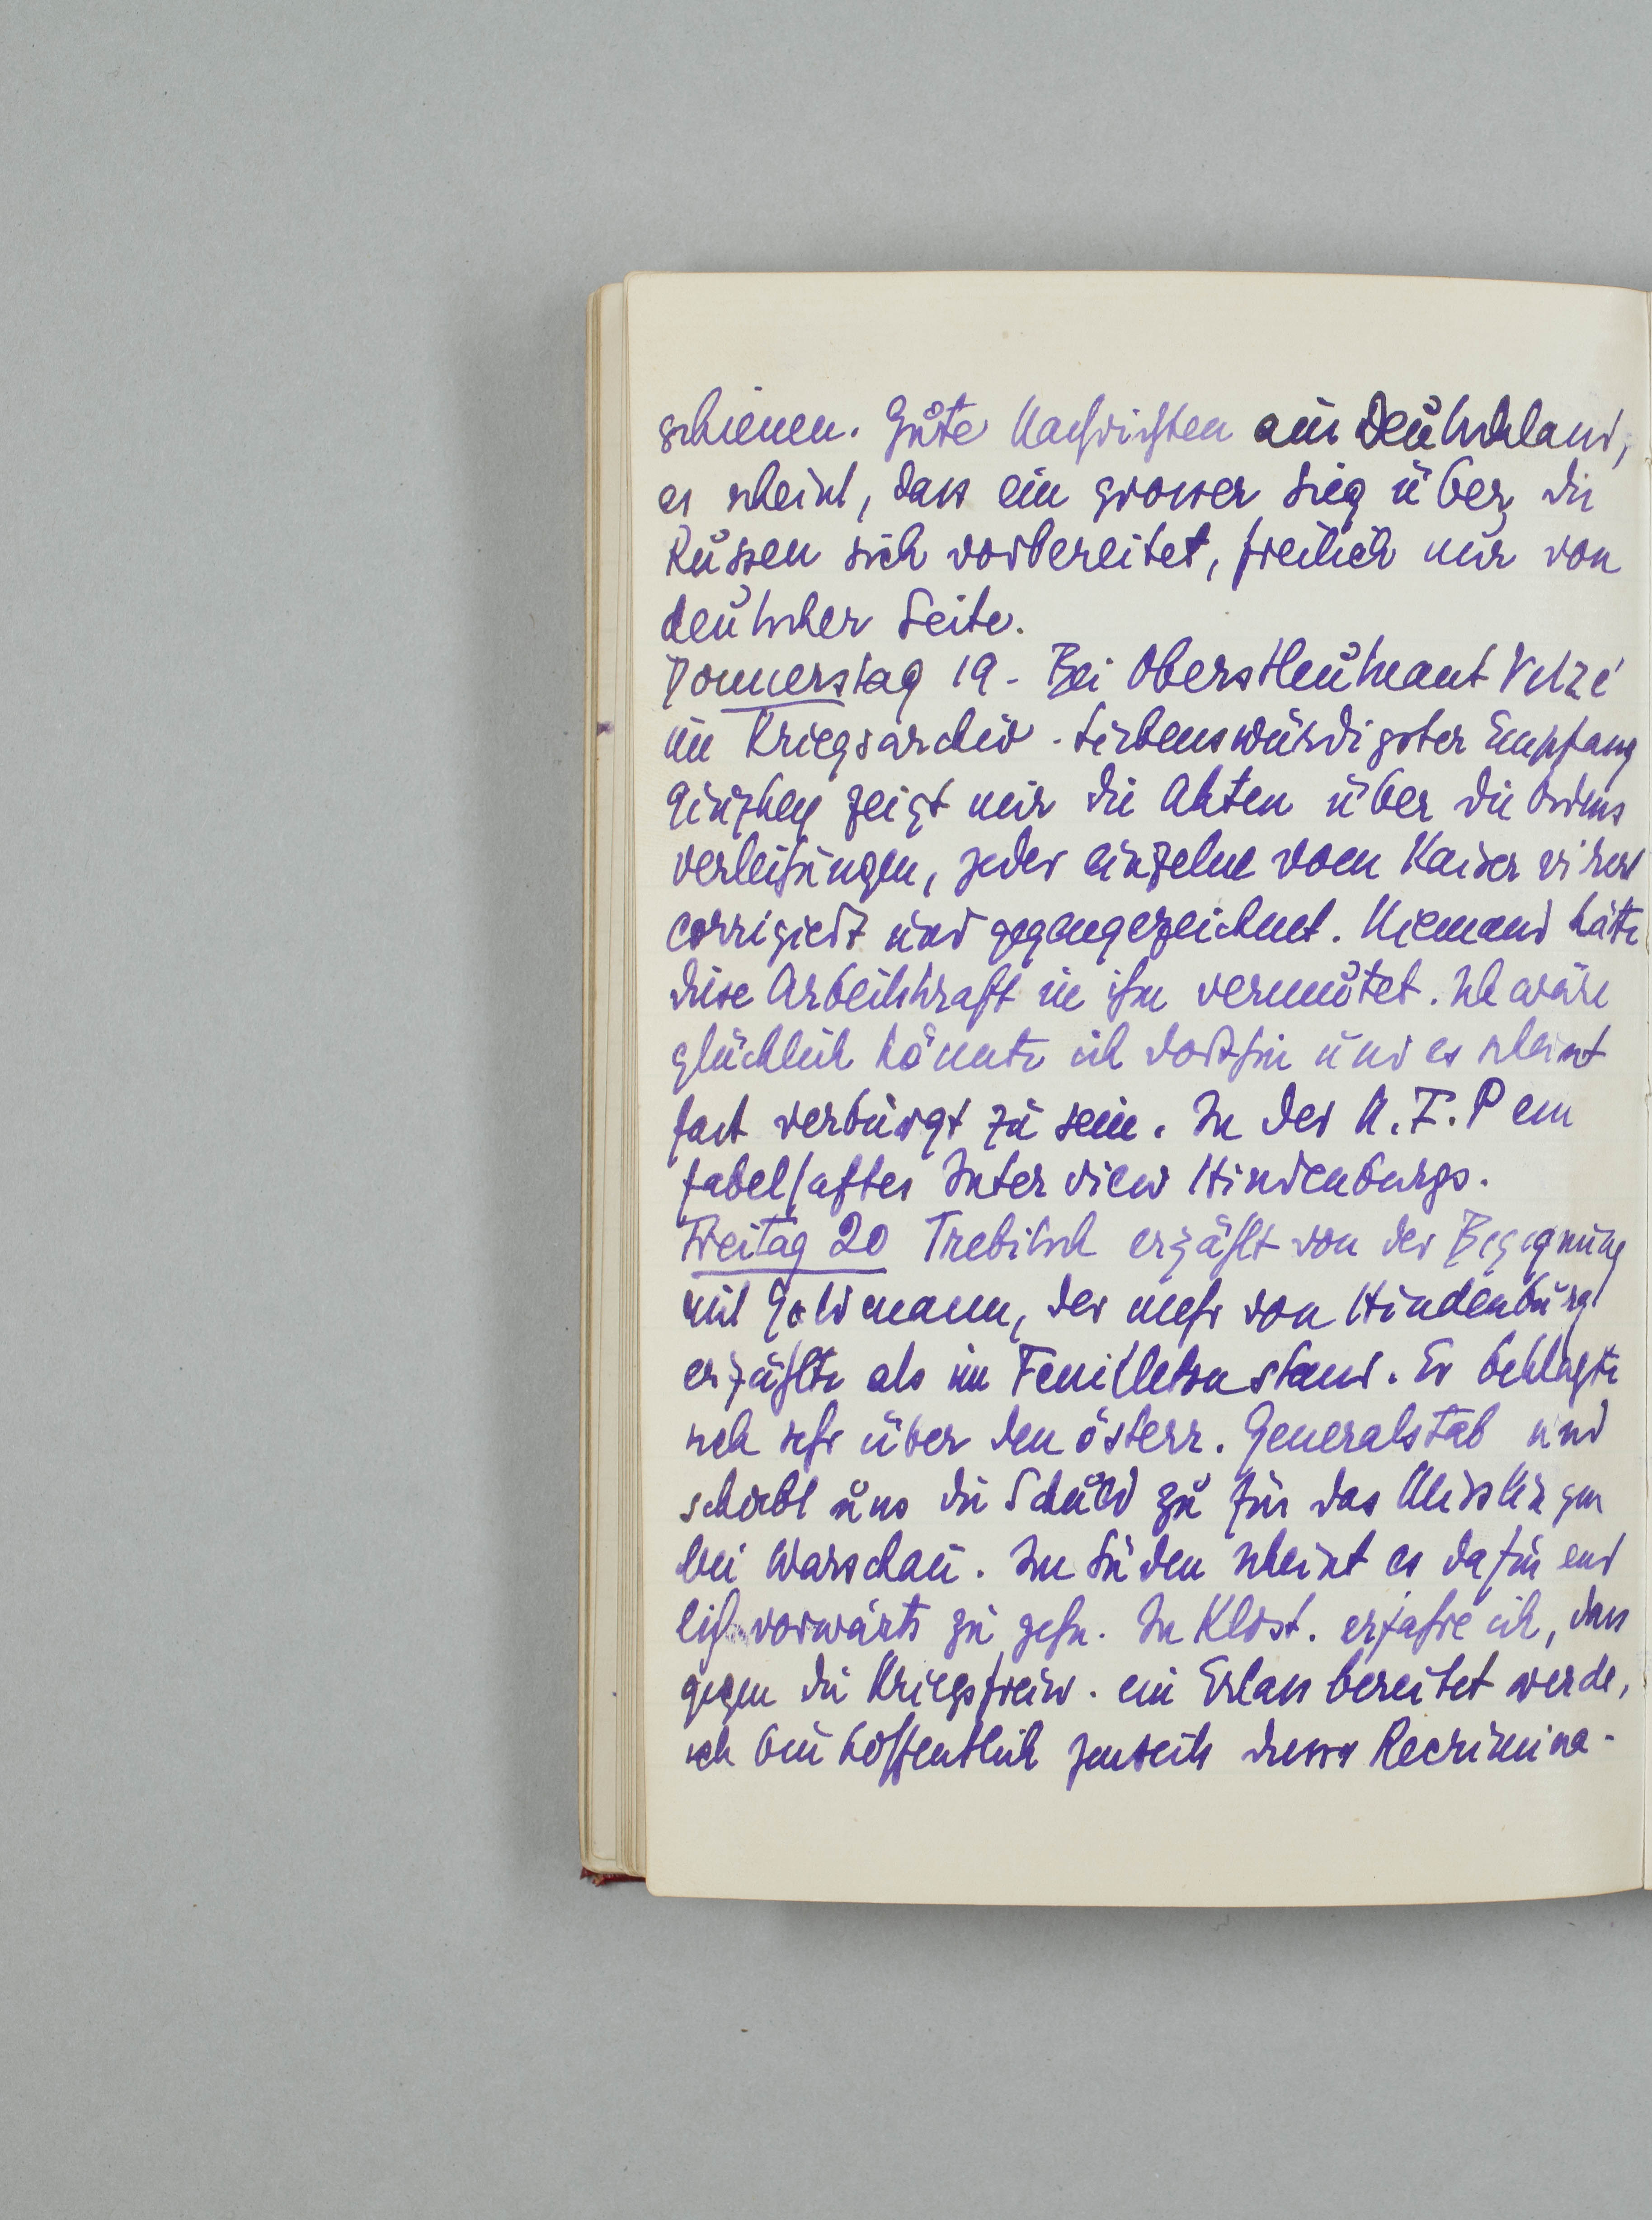 schienen. Gute Nachrichten aus Deutschland,
es scheint, dass ein grosser Sieg über die
Russen sich vorbereitet, freilich nur von
deutscher Seite.
Donnerstag 19. Bei Oberstleutnant Velzé
im Kriegsarchiv. Liebenswürdigster Empfang
Ginzkey zeigt mir die Akten über die Ordens
verleihungen, jeder einzelne vom Kaiser visiert
corrigiert und gegengezeichnet. Niemand hätte
diese Arbeitskraft in ihm vermutet. Ich wäre
glücklich könnte ich dorthin und es scheint
fast verbürgt zu sein. In der N. F. P ein
fabelhaftes Interview Hindenburgs.
Freitag 20 Trebitsch erzählt von der Begegnung
mit Goldmann, der mehr von Hindenburg
erzählte als im Feuilleton stand. Er beklagte
sich sehr über den österr. Generalstab und
schiebt uns die Schuld zu für das Misslingen
bei Warschau. Im Süden scheint es dafür end
lich vorwärts zu gehn. In Klost. erfahre ich, dass
gegen die Kriegsfreiw. ein Erlass bereitet werde,
ich bin hoffentlich jenseits dieser Recrimina-